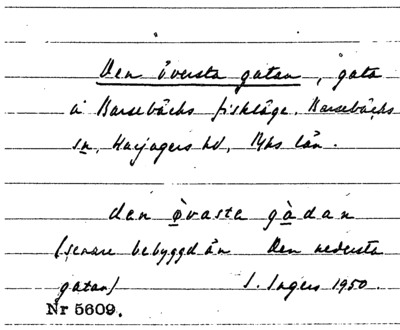 Den översta gatan, gata
i Barsebäcks fiskläge, Barsebäcks
sn, Harjagers hd, Mhs län.
dan øvasta gàdan
(senare bebyggd än Den nedersta
gatan) I. Ingers 1950.
Nr 5609.